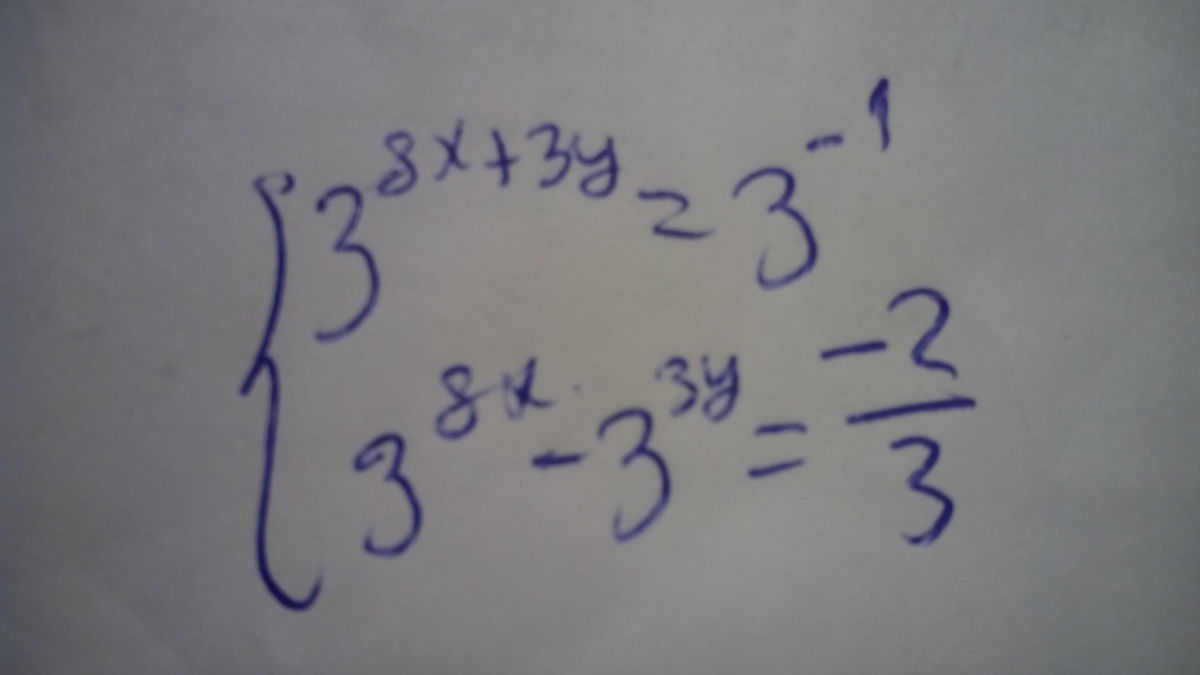 3^{8x+3y} = 3^{-1}
3^{8x} - 3^{3y} = \frac{-2}{3}